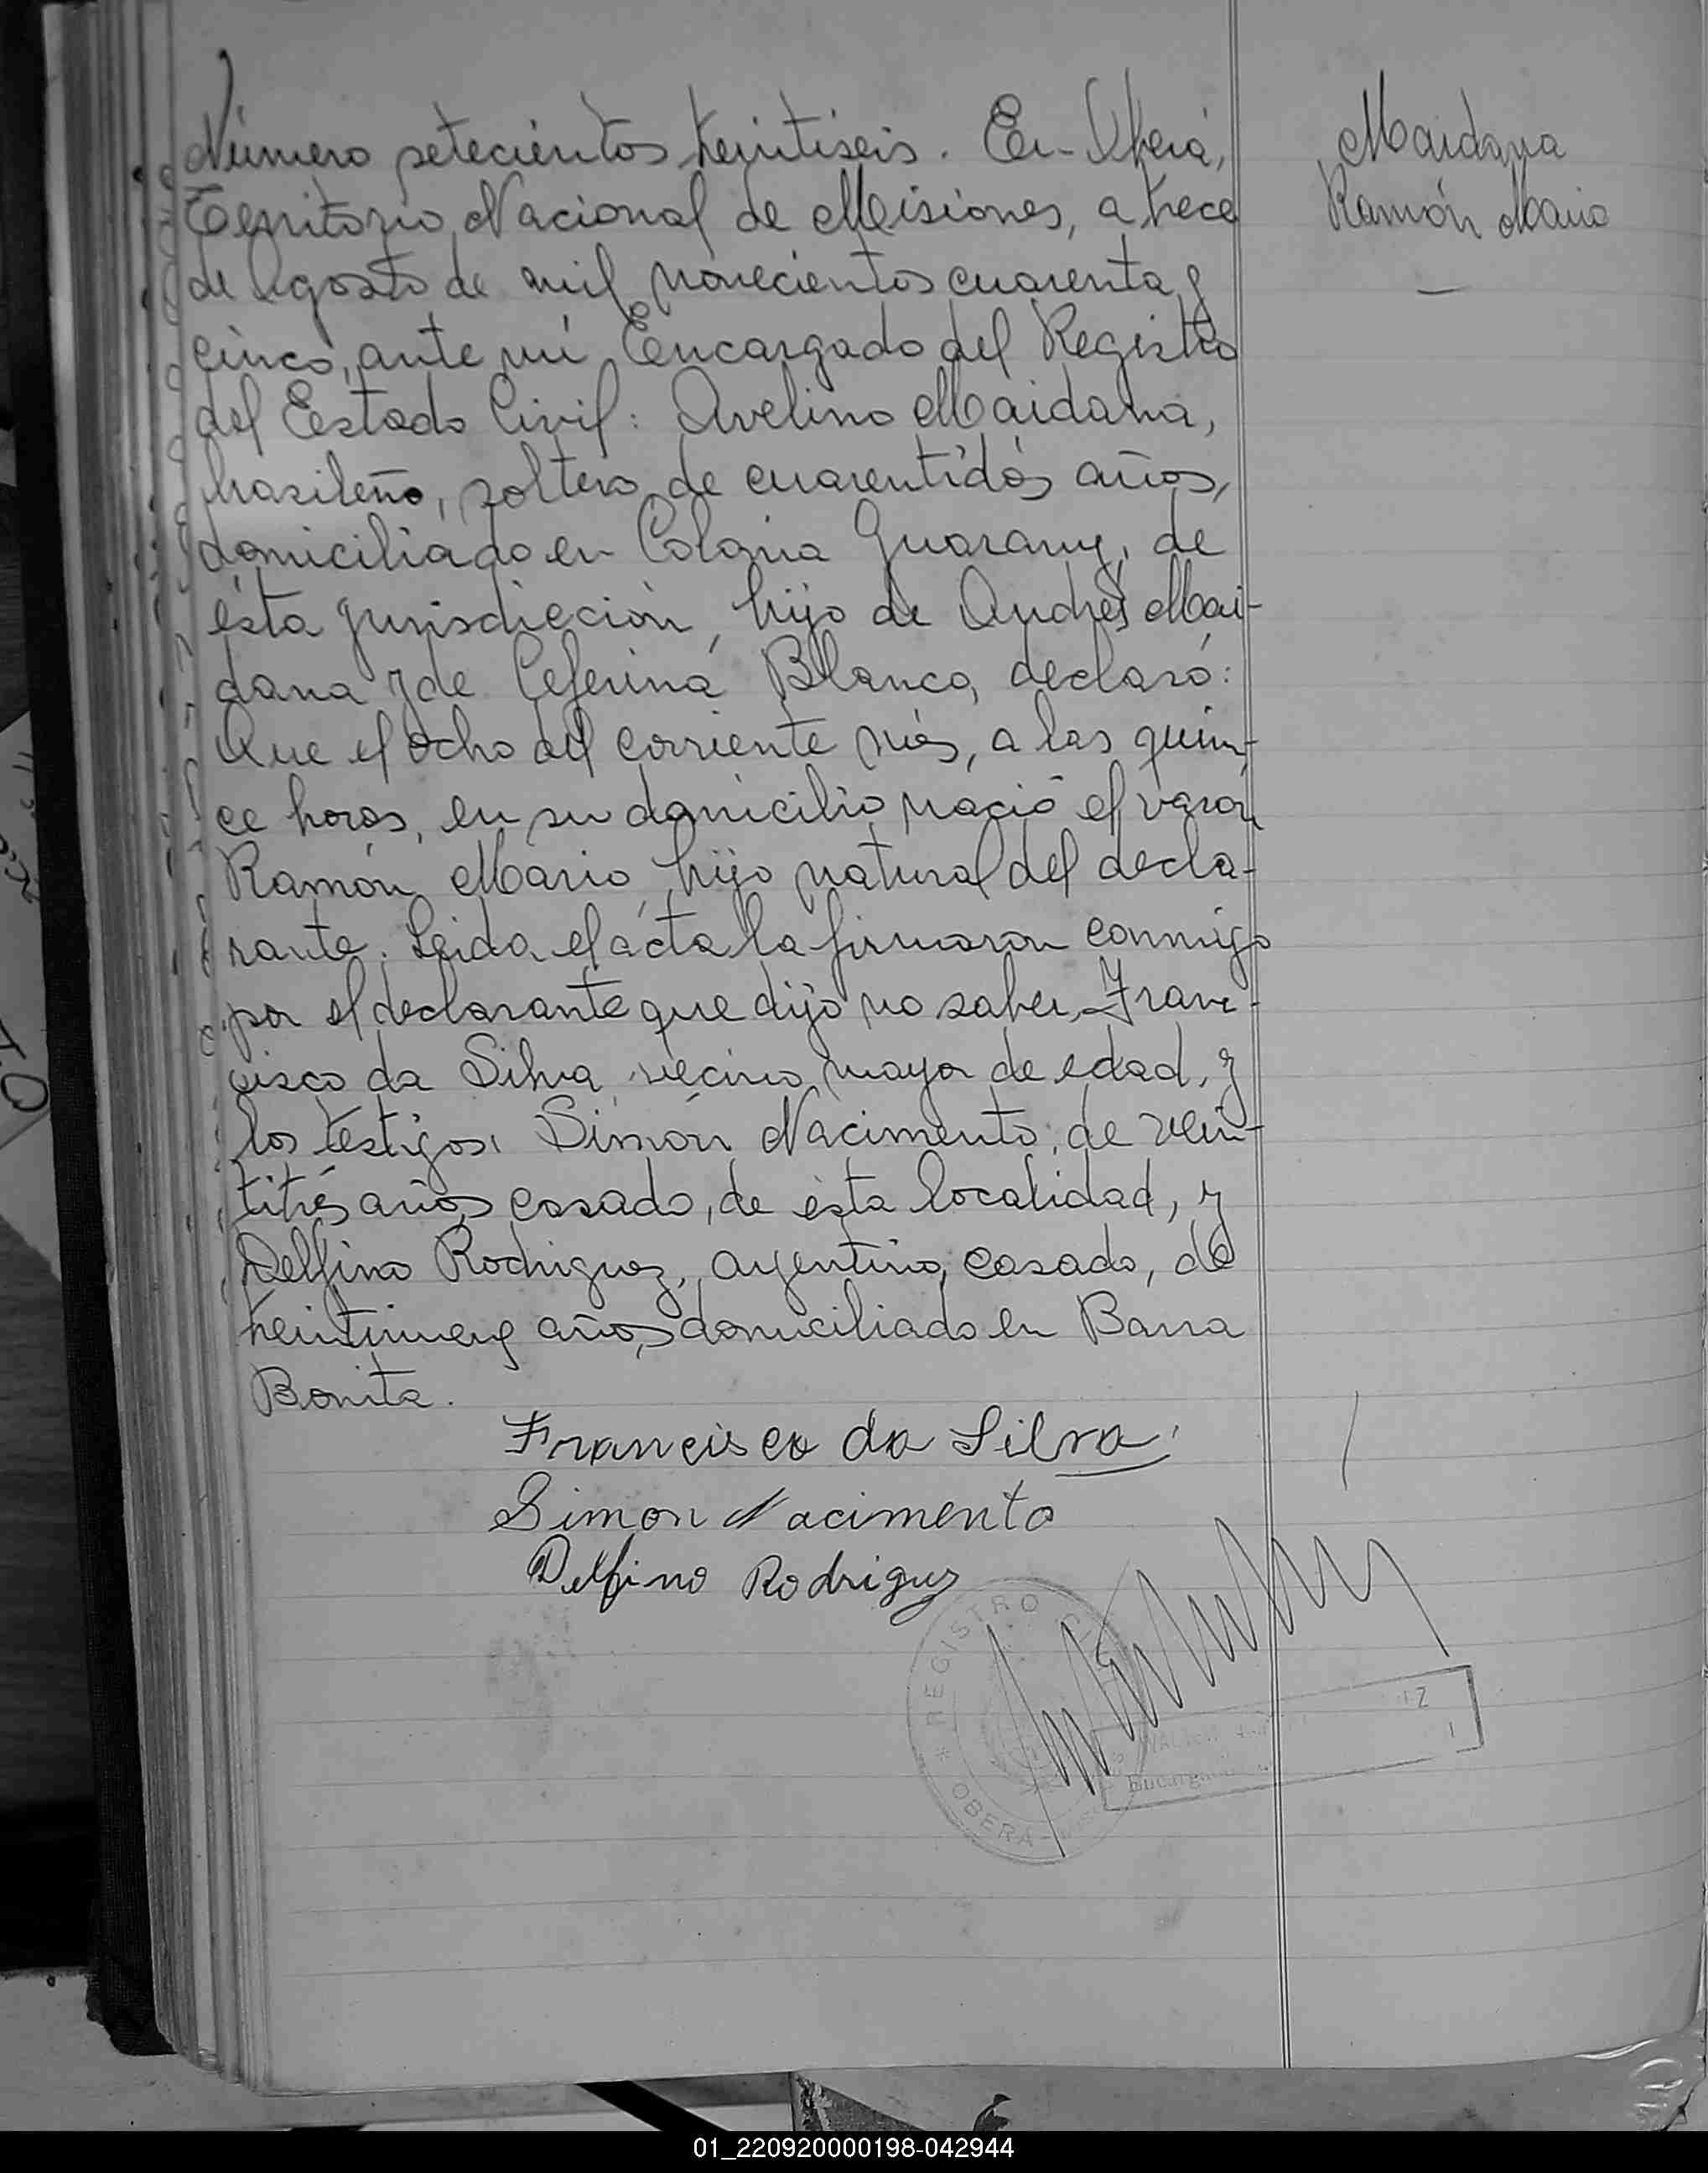 Número setecientos treintiseis. En Oberá,
Territorio Nacional de Misiones, a trece
de Agosto de mil novecientos cuarenta y
cinco, ante mí Encargado del Registro
del Estado Civil: Avelino Maidana,
brasileño, soltero, de cuarentidós años,
domiciliado en Colonia Guarany, de
ésta jurisdiccion, hijo de Andrés Mai-
dana y de Ceferina Blanco, declaró:
Que el ocho del corriente més, a las quin-
ce horas, en su domicilio nació el varón
Ramón Mário, hijo natural del decla-
rante. Leida el ácta la firmaron conmigo
por el declarante que dijo no saber, Fran-
cisco da Silva, vecino, mayor de edad, y
los testigos: Simón Nacimento, de vein-
titrés años, casado, de ésta localidad, y
Delfino Rodriguez, argentino, casado, de
treintinueve años, domiciliado en Barra
Bonita.
Francisco da Silva
Simon Nacimento
Delfino Rodriguz
Maidana
Ramón Mario
REGISTRO CIVIL
OBERA
01_220920000198-042944